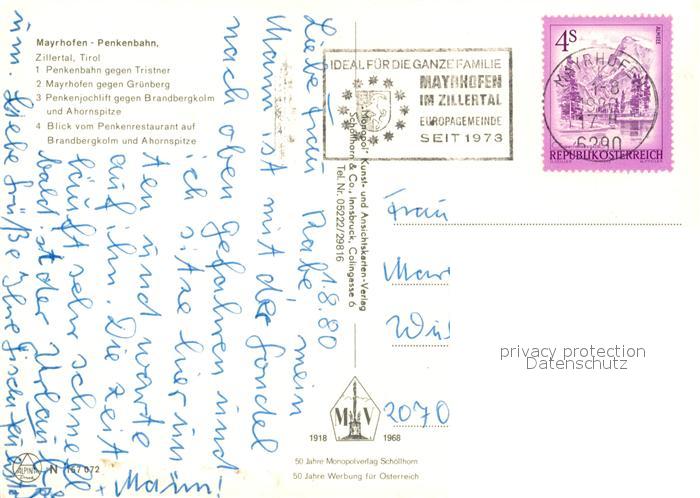 Mayrhofen - Penkenbahn,
Zillertal, Tirol
1 Penkenbahn gegen Tristner
2 Mayrhofen gegen Grünberg
3 Penkenjochlift gegen Brandbergkolm
und Ahornspitze
4 Blick vom Penkenrestaurant auf
Brandbergkolm und Ahornspitze
IDEAL FÜR DIE GANZE FAMILIE
MAYRHOFEN
IM ZILLERTAL
EUROPAGEMEINDE
SEIT 1973
4S
ALMSEE
MAYRHOFEN
6290
REPUBLIK ÖSTERREICH
"Monopol" Kunst- und Ansichtskarten-Verlag
Schöllhorn & Co., Innsbruck, Colingasse 6
Tel. Nr. 05222/29816
1.8.80
Liebe Frau Rabe, mein
Mann ist mit der Gondel
nach oben gefahren und
ich sitze hier un
ten und warte
auf ihn. Die Zeit
läuft sehr schnell
bald ist der Urlaub
um. Liebe Grüße Ihre
+ Mann!
Frau
2070
M V
1918 1968
50 Jahre Monopolverlag Schöllhorn
50 Jahre Werbung für Österreich
ALPINA
Druck
N 157 072
privacy protection
Datenschutz